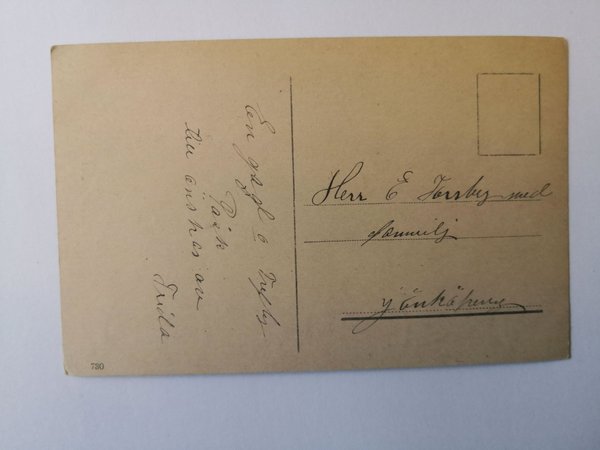 En god o Trefli
Påsk
till önskas av
Frida
Herr E Forsberg med
familj
Jönköping
730